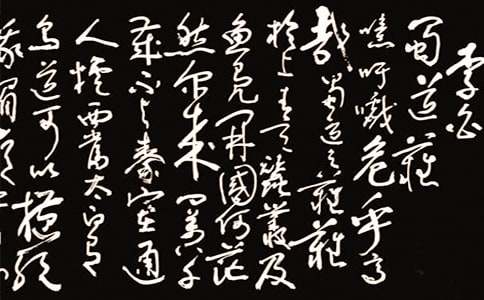 李白
蜀道難
噫吁嚱危乎高
哉蜀道之難難
於上青天蠶叢及
魚鳧開國何茫
然尔来四萬八千
歲不与秦塞通
人煙西當太白有
鳥道可以横絶
峨眉巔